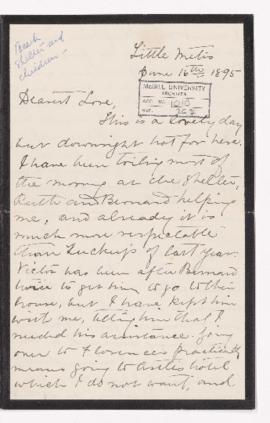 Beach
shelter and
children -
Little Metis
June 16th 1895
McGILL UNIVERSITY
ARCHIVES
ACC. NO. 1010
REF.
Dearest Love,
This is a lovely day
but downright hot for here.
I have been toiling most of
the morning at the shelter,
and Bernard helping
me, and already it is
much more respectable
than of last year.
Victor has been after Bernard
twice to get him to go to their
house, but I have kept him
with me, telling him that I
needed his assistance. Going
over to Florence's practically
means going to hotel
which I do not want, and